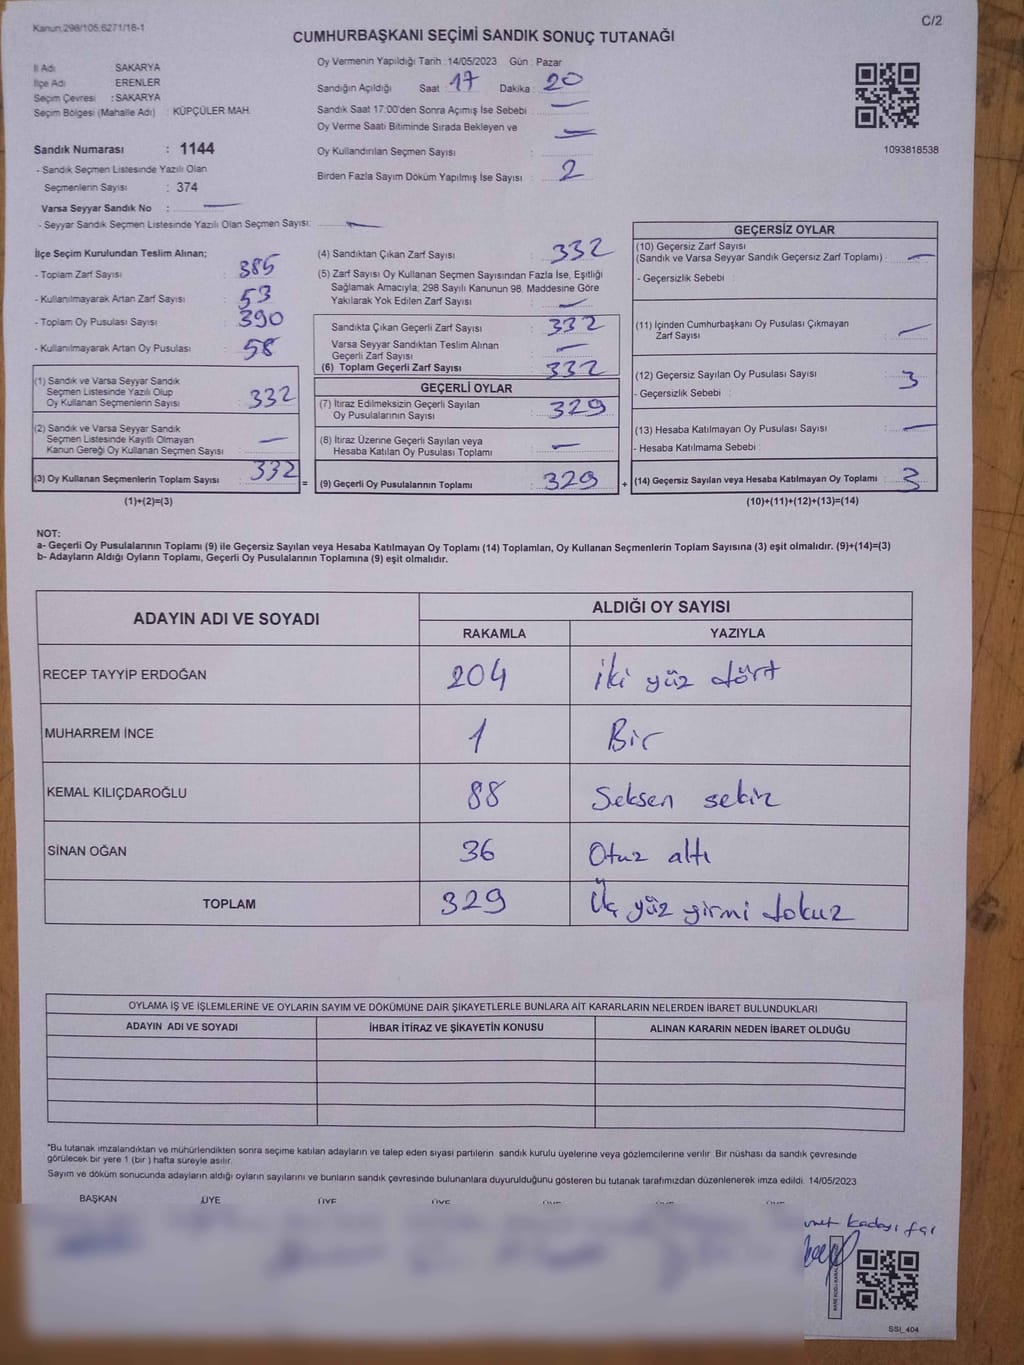 Kanun:298/105,6271/16-1
C/2
CUMHURBAŞKANI SEÇİMİ SANDIK SONUÇ TUTANAĞI
İl Adı SAKARYA
İlçe Adı ERENLER
Seçim Çevresi : SAKARYA
Seçim Bölgesi (Mahalle Adı) : KÜPÇÜLER MAH.
Sandık Numarası : 1144
- Sandık Seçmen Listesinde Yazılı Olan
Seçmenlerin Sayısı : 374
Varsa Seyyar Sandık No : —
- Seyyar Sandık Seçmen Listesinde Yazılı Olan Seçmen Sayısı: —
Oy Vermenin Yapıldığı Tarih : 14/05/2023 Gün : Pazar
Sandığın Açıldığı Saat : 17 Dakika : 20
Sandık Saat 17:00'den Sonra Açımış İse Sebebi : —
Oy Verme Saati Bitiminde Sırada Bekleyen ve
Oy Kullandırılan Seçmen Sayısı : —
Birden Fazla Sayım Döküm Yapılmış İse Sayısı : 2
1093818538
İlçe Seçim Kurulundan Teslim Alınan;
- Toplam Zarf Sayısı : 385
- Kullanılmayarak Artan Zarf Sayısı : 53
- Toplam Oy Pusulası Sayısı : 390
- Kullanılmayarak Artan Oy Pusulası : 58
(1) Sandık ve Varsa Seyyar Sandık
Seçmen Listesinde Yazılı Olup
Oy Kullanan Seçmenlerin Sayısı : 332
(2) Sandık ve Varsa Seyyar Sandık
Seçmen Listesinde Kayıtlı Olmayan
Kanun Gereği Oy Kullanan Seçmen Sayısı : —
(3) Oy Kullanan Seçmenlerin Toplam Sayısı : 332 =
(1)+(2)=(3)
(4) Sandıktan Çıkan Zarf Sayısı : 332
(5) Zarf Sayısı Oy Kullanan Seçmen Sayısından Fazla İse, Eşitliği
Sağlamak Amacıyla, 298 Sayılı Kanunun 98. Maddesine Göre
Yakılarak Yok Edilen Zarf Sayısı : —
Sandıkta Çıkan Geçerli Zarf Sayısı : 332
Varsa Seyyar Sandıktan Teslim Alınan
Geçerli Zarf Sayısı : —
(6) Toplam Geçerli Zarf Sayısı : 332
GEÇERLİ OYLAR
(7) İtiraz Edilmeksizin Geçerli Sayılan
Oy Pusulalarının Sayısı : 329
(8) İtiraz Üzerine Geçerli Sayılan veya
Hesaba Katılan Oy Pusulası Toplamı : —
(9) Geçerli Oy Pusulalarının Toplamı : 329 +
GEÇERSİZ OYLAR
(10) Geçersiz Zarf Sayısı
(Sandık ve Varsa Seyyar Sandık Geçersiz Zarf Toplamı) : —
- Geçersizlik Sebebi :
(11) İçinden Cumhurbaşkanı Oy Pusulası Çıkmayan
Zarf Sayısı : —
(12) Geçersiz Sayılan Oy Pusulası Sayısı : 3
- Geçersizlik Sebebi :
(13) Hesaba Katılmayan Oy Pusulası Sayısı : —
- Hesaba Katılmama Sebebi :
(14) Geçersiz Sayılan veya Hesaba Katılmayan Oy Toplamı : 3
(10)+(11)+(12)+(13)=(14)
NOT:
a- Geçerli Oy Pusulalarının Toplamı (9) ile Geçersiz Sayılan veya Hesaba Katılmayan Oy Toplamı (14) Toplamları, Oy Kullanan Seçmenlerin Toplam Sayısına (3) eşit olmalıdır. (9)+(14)=(3)
b- Adayların Aldığı Oyların Toplamı, Geçerli Oy Pusulalarının Toplamına (9) eşit olmalıdır.
ADAYIN ADI VE SOYADI
ALDIĞI OY SAYISI
RAKAMLA YAZIYLA
RECEP TAYYİP ERDOĞAN 204 İki yüz dört
MUHARREM İNCE 1 Bir
KEMAL KILIÇDAROĞLU 88 Seksen sekiz
SİNAN OĞAN 36 Otuz altı
TOPLAM 329 Üç yüz yirmi dokuz
OYLAMA İŞ VE İŞLEMLERİNE VE OYLARIN SAYIM VE DÖKÜMÜNE DAİR ŞİKAYETLERLE BUNLARA AİT KARARLARIN NELERDEN İBARET BULUNDUKLARI
ADAYIN ADI VE SOYADI İHBAR İTİRAZ VE ŞİKAYETİN KONUSU ALINAN KARARIN NEDEN İBARET OLDUĞU
*Bu tutanak imzalandıktan ve mühürlendikten sonra seçime katılan adayların ve talep eden siyasi partilerin sandık kurulu üyelerine veya gözlemcilerine verilir. Bir nüshası da sandık çevresinde
görülecek bir yere 1 (bir ) hafta süreyle asılır.
Sayım ve döküm sonucunda adayların aldığı oyların sayılarını ve bunların sandık çevresinde bulunanlara duyurulduğunu gösteren bu tutanak tarafımızdan düzenlenerek imza edildi. 14/05/2023
BAŞKAN ÜYE ÜYE ÜYE
SSI_404